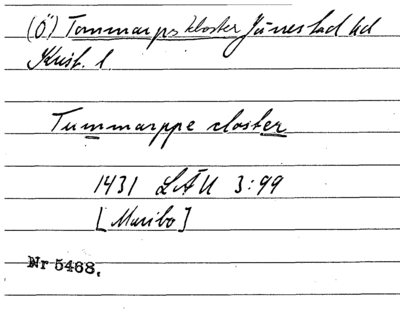 (Ö) Tommarps kloster Järrestad hd
Krist. l
Tummarppe closter
1431 LÄU 3:99
[Maribo]
Nr 5468.